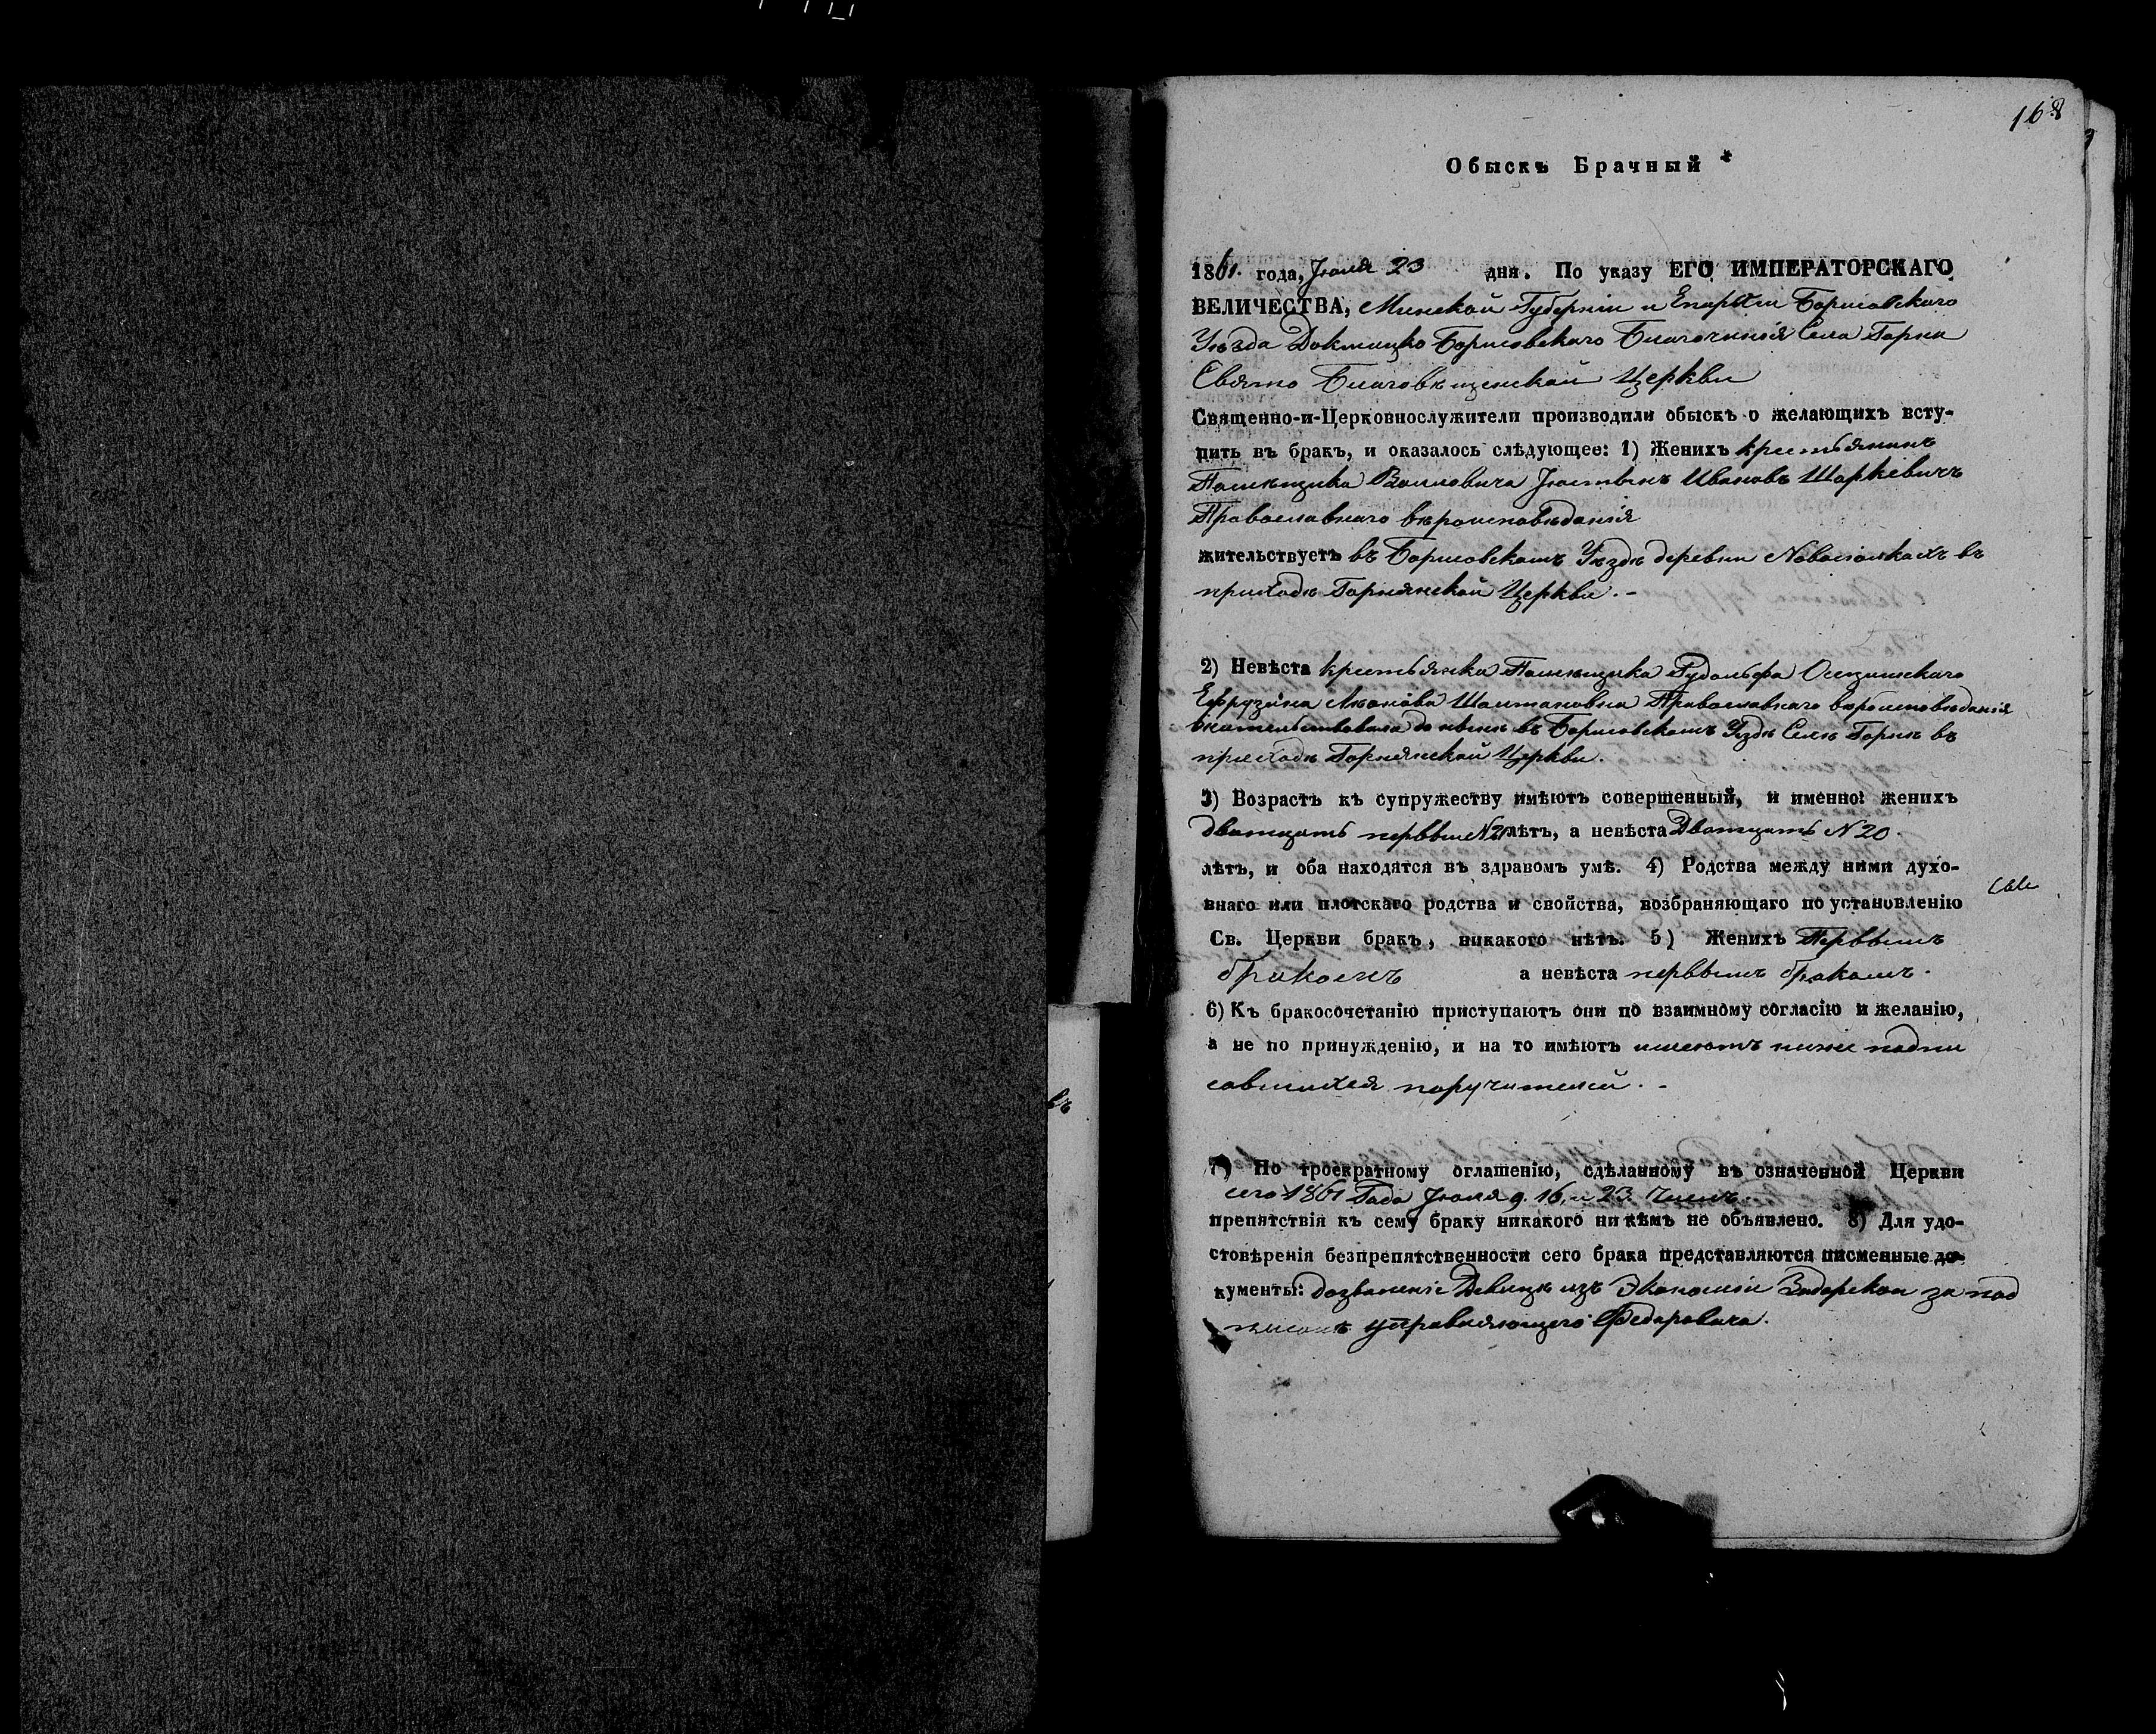 168
Обыскъ Брачный
1861. года, Іюля 23 дня. По указу ЕГО ИМПЕРАТОРСКАГО
ВЕЛИЧЕСТВА, Минской Губерніи и Епархіи Борисовскаго
Уѣзда Докшицко Борисовскаго Благочинія Села Горна
Свято Благовѣщенской Церкви
Священно-и-Церковнослужители производили обыскъ о желающихъ всту-
пить въ бракъ, и оказалось слѣдующее: 1) Женихъ крестьянинъ
Помѣщика Іюстынъ Ивановъ Шаркевичъ
Православнаго вѣроисповѣданія
жительствуетъ въ Борисовскомъ Уѣздѣ деревни Новоселкахъ въ
приходѣ Горнянской Церкви. -
2) Невѣста крестьянка Помѣщика Рудольфа
Ефрузина Православнаго вѣроисповѣданія
жительствовала до нынѣ въ Борисовскомъ Уѣздѣ Селѣ Горнѣ въ
приходѣ Горнянской Церкви.
3) Возрастъ къ супружеству имѣютъ совершенный, и именно: женихъ
дватцать первый N 21 лѣтъ, а невѣста Дватцать N 20.
лѣтъ, и оба находятся въ здравомъ умѣ. 4) Родства между ними духо-
внаго или плотскаго родства и свойства, возбраняющаго по установленію
Св. Церкви бракъ, никакого нѣтъ. 5) Женихъ Первымъ
бракомъ а невѣста первымъ бракомъ.
6) Къ бракосочетанію приступаютъ они по взаимному согласію и желанію,
а не по принужденію, и на то имѣютъ имеютъ ниже подпи
савшихся поручителей. -
7) По троекратному оглашенію, сдѣланному въ означенной Церкви
сего 1861 Года Іюля 9. 16, и 23. Числъ.
препятствія къ сему браку никакого ни кѣмъ не объявлено. 8) Для удо-
стовѣренія безпрепятственности сего брака представляются писменные до-
кументы: дозволеніе Девицѣ изъ Экономіи за под
управляющего Федаровича.